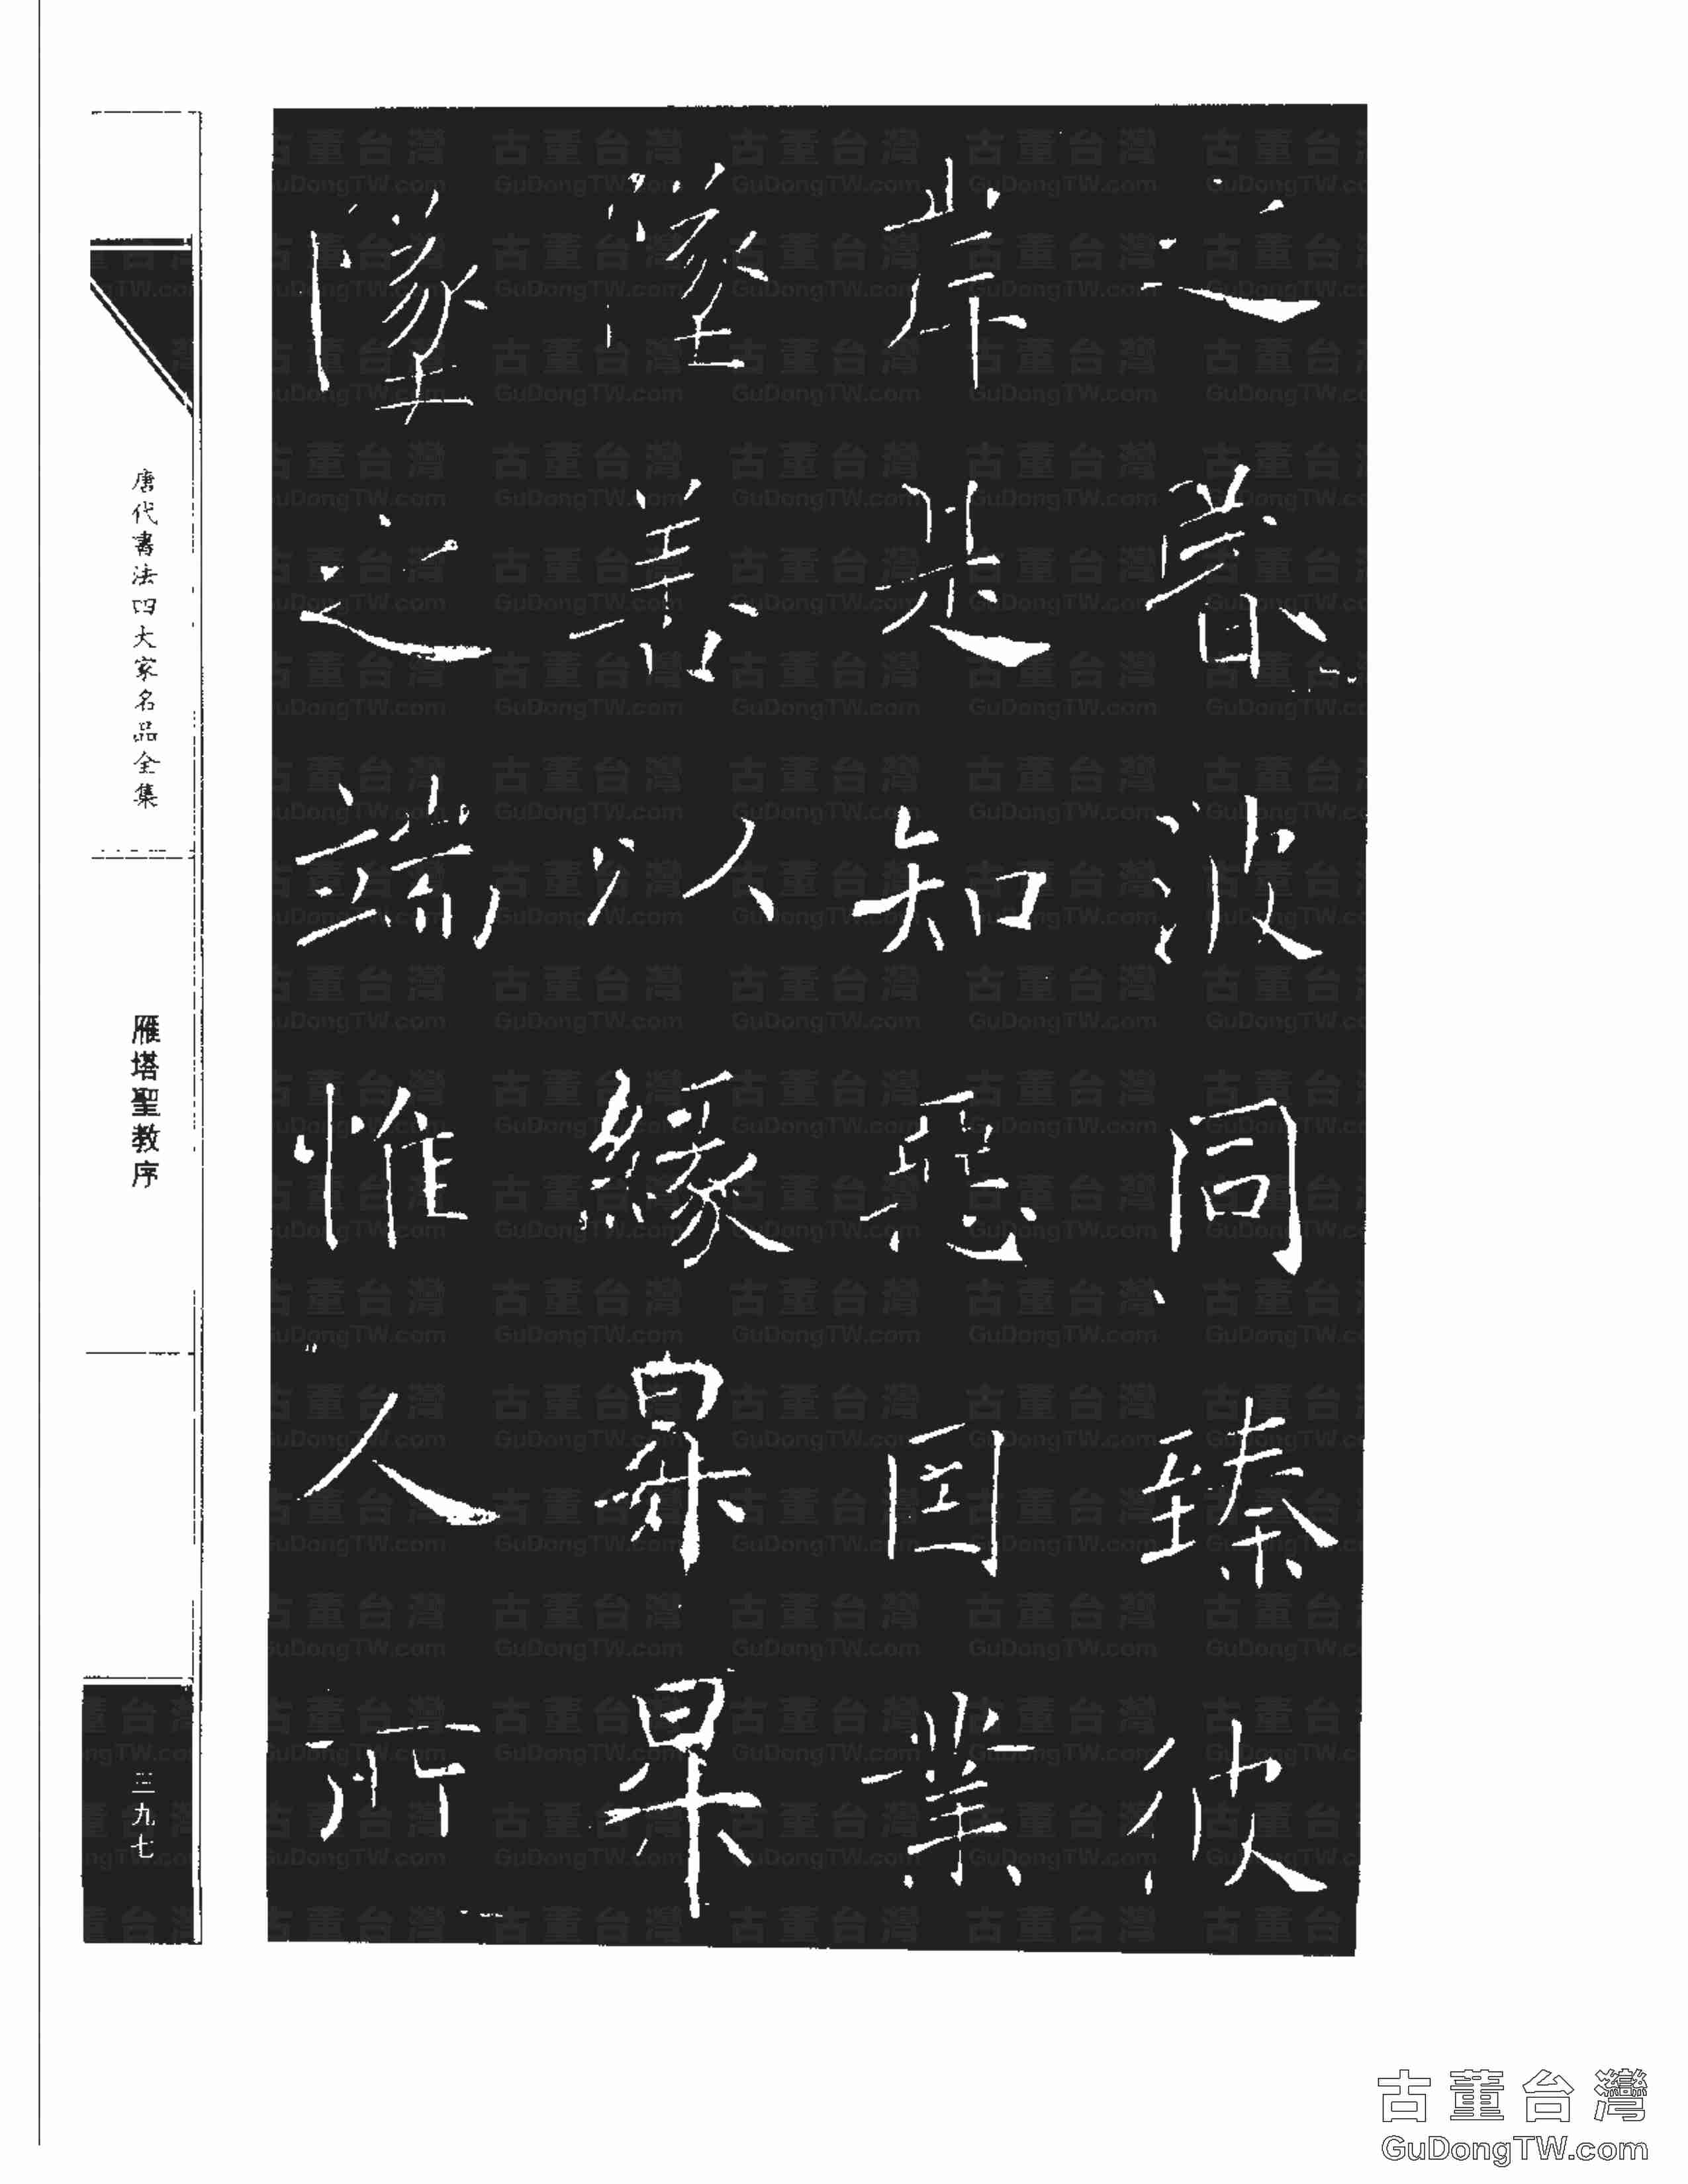 之昏波同臻彼
岸是知惡因業
墜善以緣昇昇
墜之端惟人所
唐代書法四大家名品全集
雁塔聖教序
三九七
古董台灣
GuDongTW.com